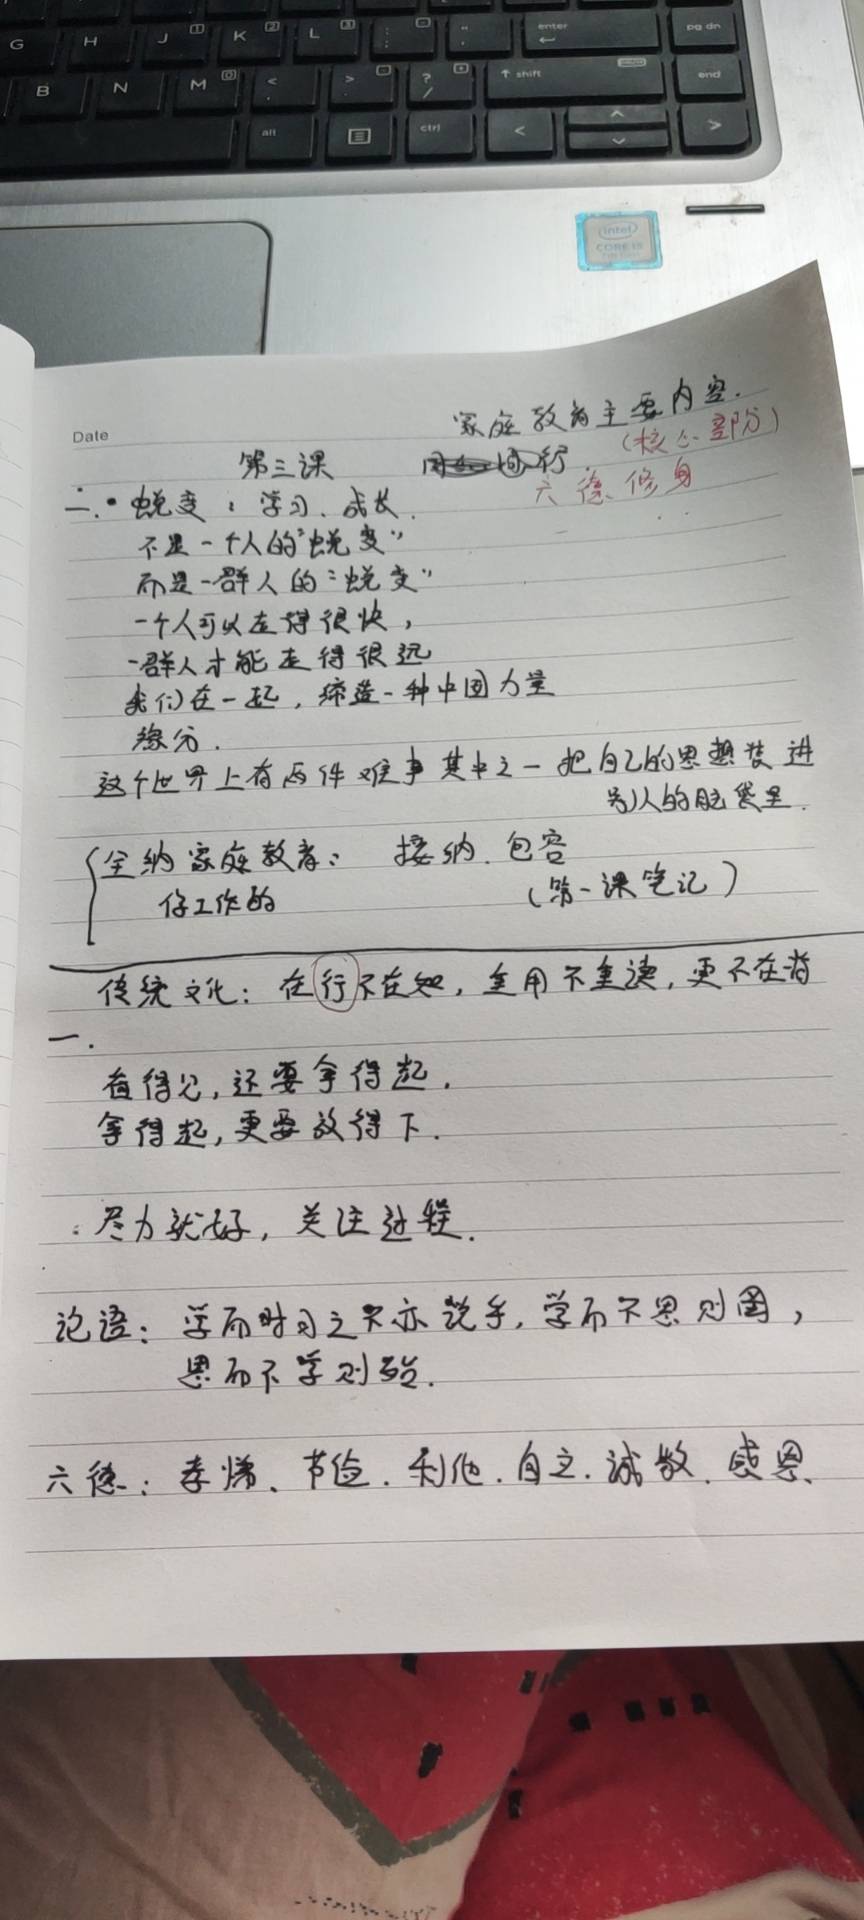 G H J K L : ; " ' enter pg dn
B N M < > ? / ↑ shift end
alt ctrl < ^ >
intel
CORE i5
Date
家庭教育主要内容.
(核心部分)
第三课 行
六德修身
二.·蜕变：学习、成长.
不是一个人的"蜕变"
而是一群人的"蜕变"
一个人可以走得很快，
一群人才能走得很远
我们在一起，缔造一种中国力量
缘分.
这个世界上有两件难事其中之一把自己的思想装进
别人的脑袋里.
全纳家庭教育： 接纳、包容
工作的 (第一课笔记)
传统文化：在行不在知，重用不重读，更不在背
一.
看得见，还要拿得起.
拿得起，更要放得下.
尽力就好，关注过程.
论语：学而时习之不亦说乎，学而不思则罔，
思而不学则殆.
六德：孝悌、节俭、利他、自立、诚敬、感恩、